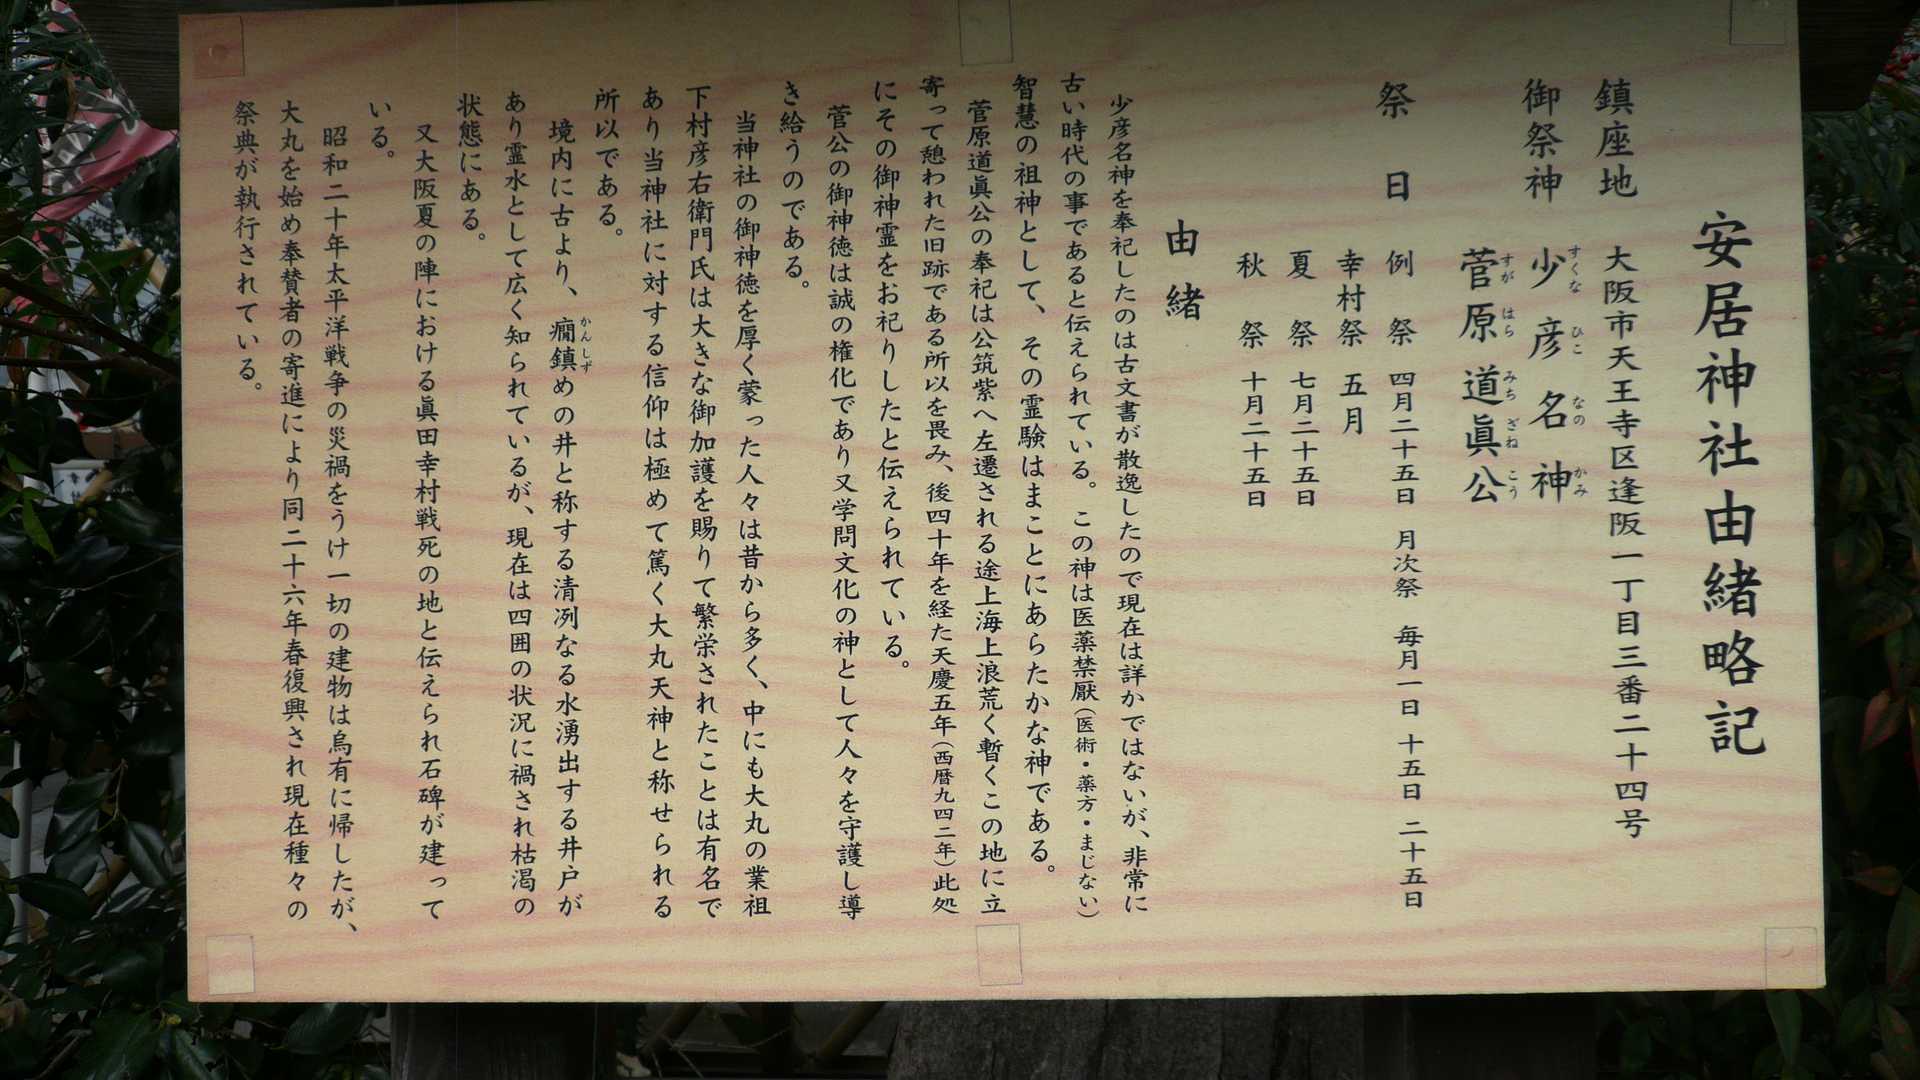 安居神社由緒略記
鎮座地　大阪市天王寺区逢阪一丁目三番二十四号
御祭神　少彦名神
すくな　ひこ　なの　かみ
菅原道眞公
すが　はら　みち　ざね　こう
祭　日　例　祭　四月二十五日　月次祭　毎月一日　十五日　二十五日
幸村祭　五月
夏　祭　七月二十五日
秋　祭　十月二十五日
由緒
少彦名神を奉祀したのは古文書が散逸したので現在は詳かではないが、非常に
古い時代の事であると伝えられている。この神は医薬禁厭（医術・薬方・まじない）
智慧の祖神として、その霊験はまことにあらたかな神である。
菅原道眞公の奉祀は公筑紫へ左遷される途上海上浪荒く暫くこの地に立
寄って憩われた旧跡である所以を畏み、後四十年を経た天慶五年（西暦九四二年）此処
にその御神霊をお祀りしたと伝えられている。
菅公の御神徳は誠の権化であり又学問文化の神として人々を守護し導
き給うのである。
当神社の御神徳を厚く蒙った人々は昔から多く、中にも大丸の業祖
下村彦右衛門氏は大きな御加護を賜りて繁栄されたことは有名で
あり当神社に対する信仰は極めて篤く大丸天神と称せられる
所以である。
境内に古より、癇鎮めの井と称する清冽なる水湧出する井戸が
かんしず
あり霊水として広く知られているが、現在は四囲の状況に禍され枯渇の
状態にある。
又大阪夏の陣における眞田幸村戦死の地と伝えられ石碑が建って
いる。
昭和二十年太平洋戦争の災禍をうけ一切の建物は烏有に帰したが、
大丸を始め奉賛者の寄進により同二十六年春復興され現在種々の
祭典が執行されている。